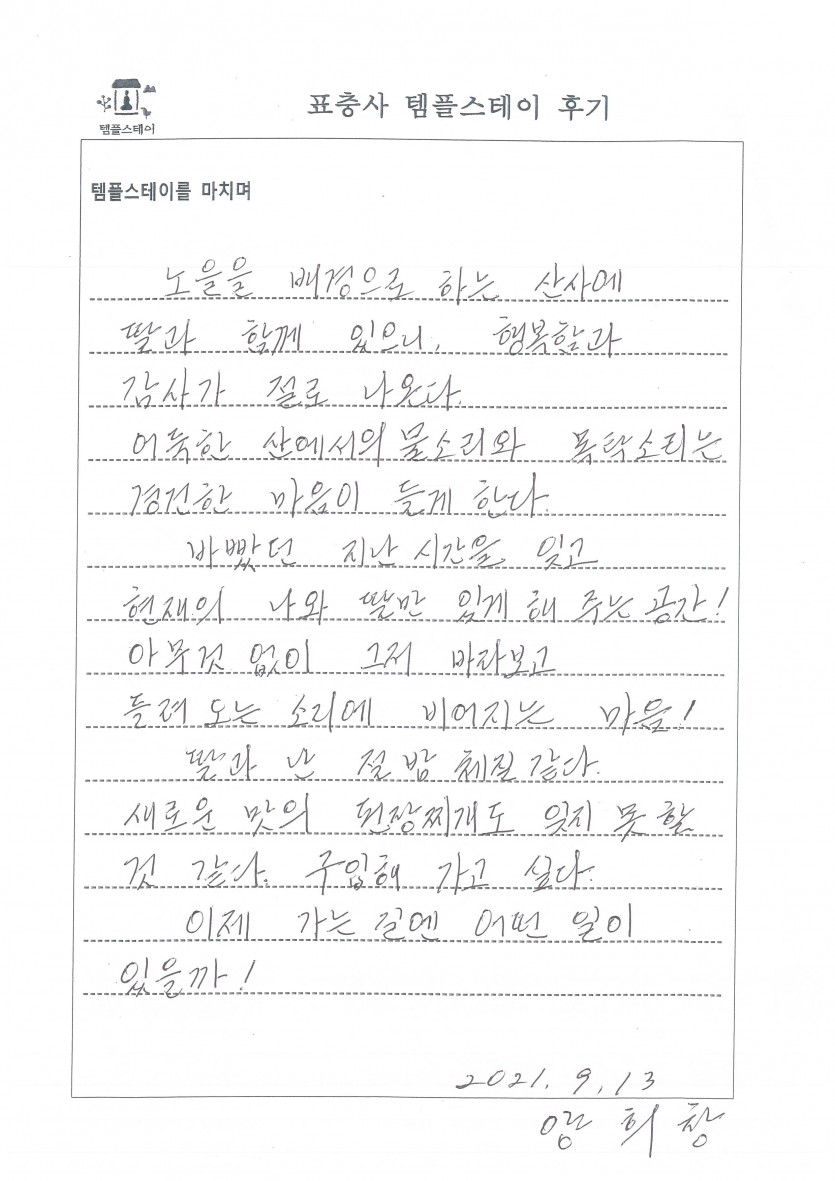 템플스테이
표충사 템플스테이 후기
템플스테이를 마치며
노을을 배경으로 하는 산사에
딸과 함께 있으니, 행복함과
감사가 절로 나온다.
어둑한 산에서의 물소리와 목탁소리는
경건한 마음이 들게 한다.
바빴던 지난 시간을 잊고
현재의 나와 딸만 있게 해 주는 공간!
아무것 없이 그저 바라보고
들려 오는 소리에 비어지는 마음!
딸과 난 절 밥 체질 같다.
새로운 맛의 된장찌개도 잊지 못 할
것 같다. 구입해 가고 싶다.
이제 가는 길엔 어떤 일이
있을까!
2021. 9. 13
양 희 창